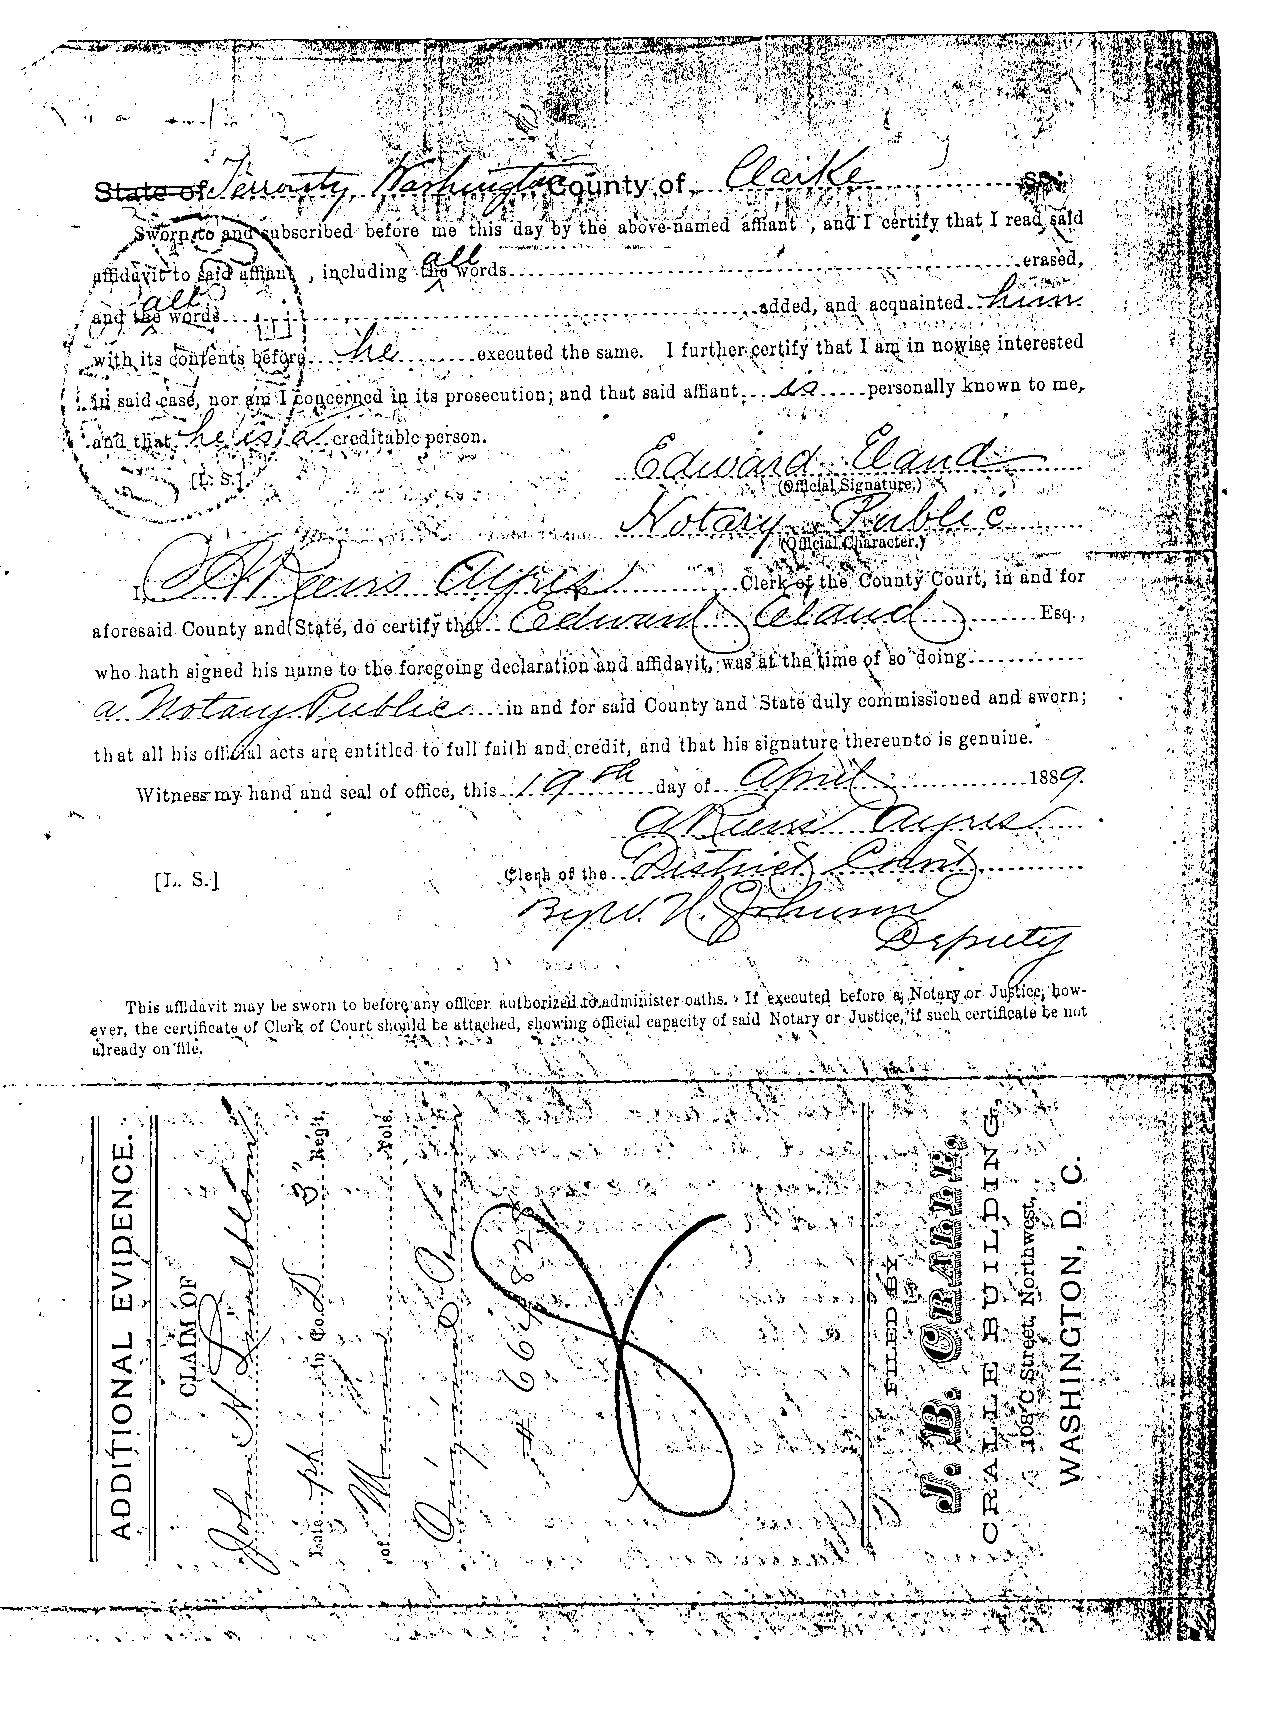 State of Terrouty Washington County of Clarke ss:
Sworn to and subscribed before me this day by the above-named affiant , and I certify that I read said
affidavit to said affiant , including the all words erased,
and the all words added, and acquainted him
with its contents before he executed the same. I further certify that I am in nowise interested
in said case, nor am I concerned in its prosecution; and that said affiant is personally known to me,
and that he is a creditable person.
Edward Eland
[L. S.]
(Official Signature.)
Notary Public
(Official Character.)
I, Ayres Clerk of the County Court, in and for
aforesaid County and State, do certify that Edward Eland Esq.,
who hath signed his name to the foregoing declaration and affidavit, was at the time of so doing
a Notary Public in and for said County and State duly commissioned and sworn;
that all his official acts are entitled to full faith and credit, and that his signature thereunto is genuine.
Witness my hand and seal of office, this 19th day of April 1889.
Ayres
[L. S.] Clerk of the District Court
By W. H. Johnson
Deputy
This affidavit may be sworn to before any officer authorized to administer oaths. If executed before a Notary or Justice, how-
ever, the certificate of Clerk of Court should be attached, showing official capacity of said Notary or Justice, if such certificate be not
already on file.
ADDITIONAL EVIDENCE.
CLAIM OF
John N Lindblom
Late in Co. D 3" Reg't,
of Vols.
FILED BY
J. B. CRALLE,
CRALLE BUILDING,
108 C Street, Northwest,
WASHINGTON, D. C.